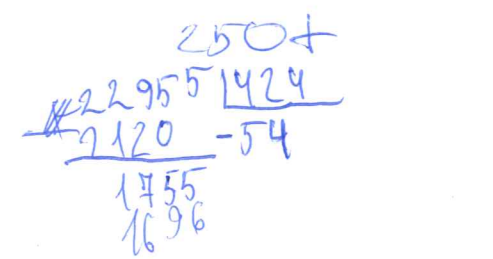 250+
22955 424
2120 -54
1755
1696